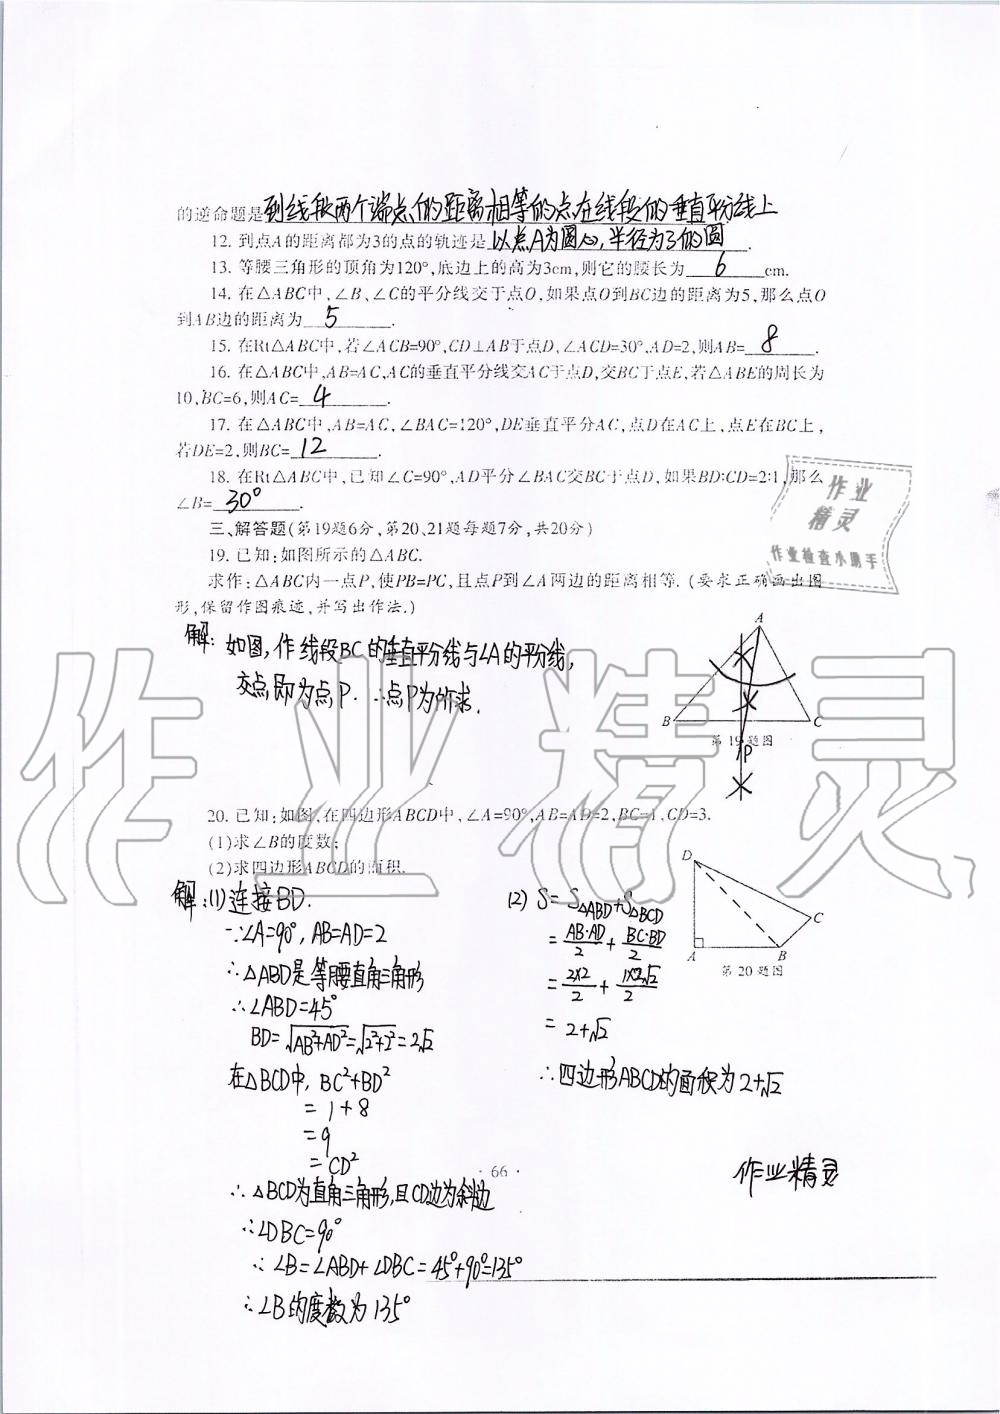 的逆命题是到线段两个端点的距离相等的点在线段的垂直平分线上
12. 到点A的距离都为3的点的轨迹是以点A为圆心,半径为3的圆.
13. 等腰三角形的顶角为120°,底边上的高为3cm,则它的腰长为6cm.
14. 在△ABC中,∠B、∠C的平分线交于点O,如果点O到BC边的距离为5,那么点O
到AB边的距离为5.
15. 在Rt△ABC中,若∠ACB=90°,CD⊥AB于点D,∠ACD=30°,AD=2,则AB=8.
16. 在△ABC中,AB=AC,AC的垂直平分线交AC于点D,交BC于点E,若△ABE的周长为
10,BC=6,则AC=4.
17. 在△ABC中,AB=AC,∠BAC=120°,DE垂直平分AC,点D在AC上,点E在BC上,
若DE=2,则BC=12.
18. 在Rt△ABC中,已知∠C=90°,AD平分∠BAC交BC于点D,如果BD:CD=2:1,那么
∠B=30°.
作业
精灵
作业检查小助手
三、解答题(第19题6分,第20、21题每题7分,共20分)
19. 已知:如图所示的△ABC.
求作:△ABC内一点P,使PB=PC,且点P到∠A两边的距离相等.(要求正确画出图
形,保留作图痕迹,并写出作法.)
解:如图,作线段BC的垂直平分线与∠A的平分线,
交点即为点P.∴点P为所求.
A
B
C
第19题图
P
作业精灵
20. 已知:如图,在四边形ABCD中,∠A=90°,AB=AD=2,BC=1,CD=3.
(1)求∠B的度数;
(2)求四边形ABCD的面积.
D
C
A
B
第20题图
解:(1)连接BD.
∵∠A=90°,AB=AD=2
∴△ABD是等腰直角三角形
∴∠ABD=45°
BD=√AB²+AD²=√2²+2²=2√2
在△BCD中,BC²+BD²
=1+8
=9
=CD²
∴△BCD为直角三角形,且CD边为斜边
∴∠DBC=90°
∴∠B=∠ABD+∠DBC=45°+90°=135°
∴∠B的度数为135°
(2) S=S△ABD+S△BCD
=AB·AD/2+BC·BD/2
=2×2/2+1×2√2/2
=2+√2
∴四边形ABCD的面积为2+√2
·66·
作业精灵